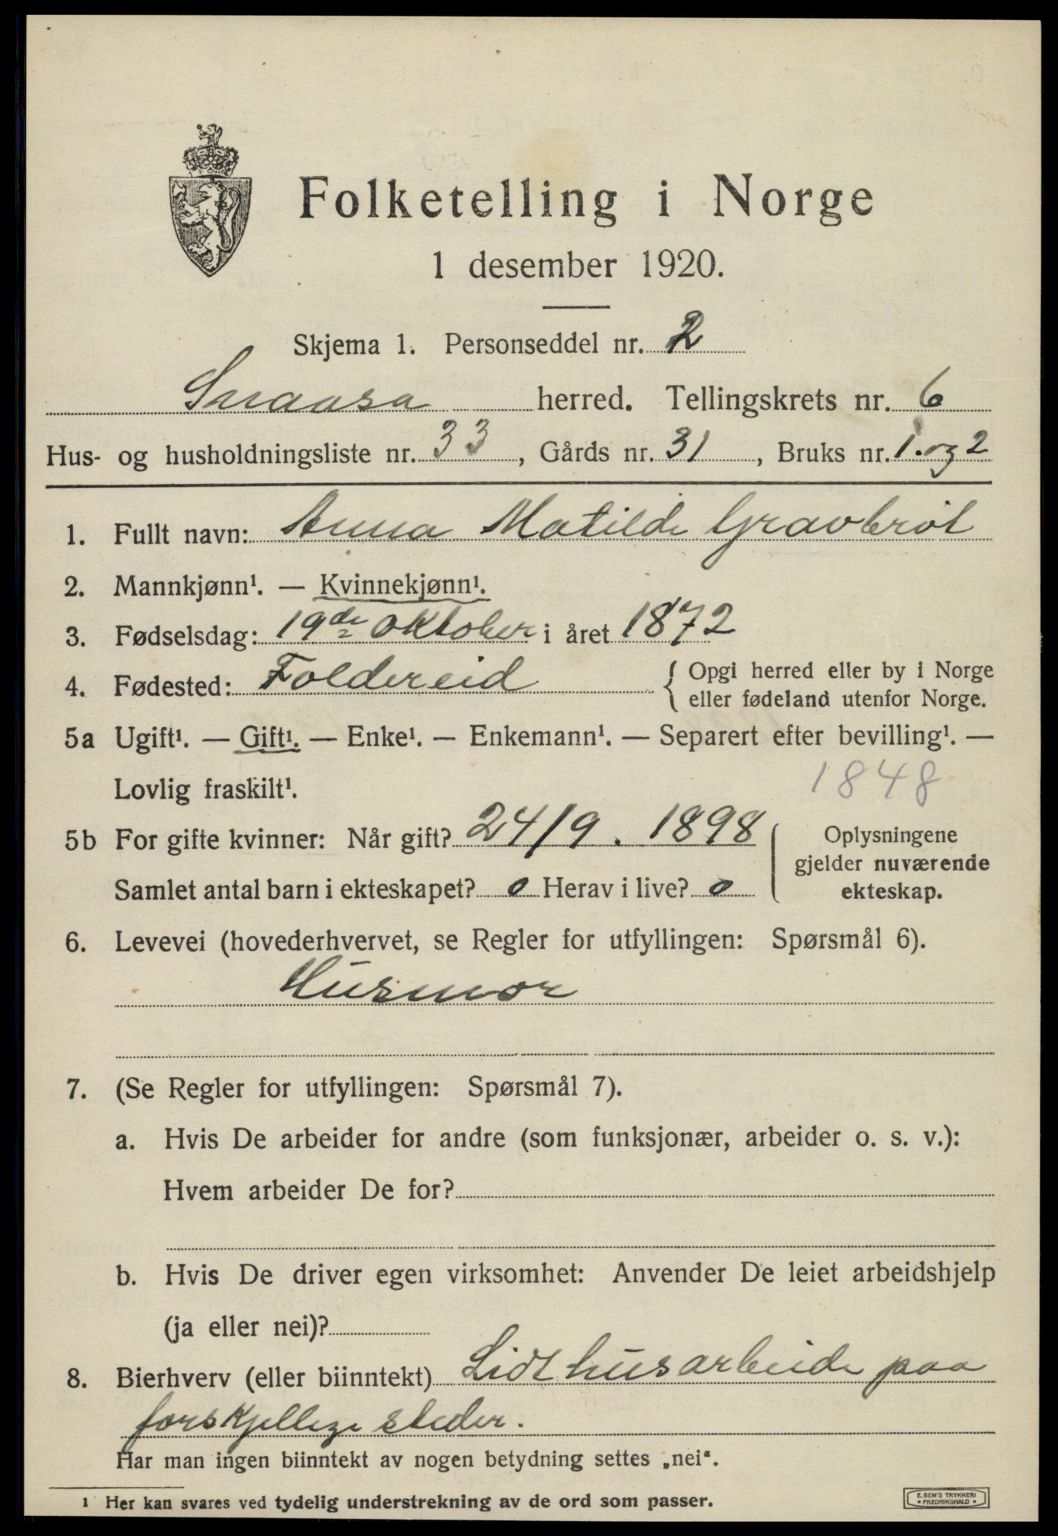 Folketelling i Norge
1 desember 1920.
Skjema 1. Personseddel nr. 2
Snaasa herred. Tellingskrets nr. 6
Hus- og husholdningsliste nr. 33, Gårds nr. 31, Bruks nr. 1. og 2
1. Fullt navn: Anna Matilde Gravbrøt
2. Mannkjønn¹. — Kvinnekjønn¹.
3. Fødselsdag: 19de oktober i året 1872
4. Fødested: Foldereid { Opgi herred eller by i Norge
eller fødeland utenfor Norge.
5a Ugift¹. — Gift¹. — Enke¹. — Enkemann¹. — Separert efter bevilling¹. —
Lovlig fraskilt¹. 1848
5b For gifte kvinner: Når gift? 24/9. 1898
Samlet antal barn i ekteskapet? 0 Herav i live? 0
Oplysningene
gjelder nuværende
ekteskap.
6. Levevei (hovederhvervet, se Regler for utfyllingen: Spørsmål 6).
Husmor
7. (Se Regler for utfyllingen: Spørsmål 7).
a. Hvis De arbeider for andre (som funksjonær, arbeider o. s. v.):
Hvem arbeider De for?
b. Hvis De driver egen virksomhet: Anvender De leiet arbeidshjelp
(ja eller nei)?
8. Bierhverv (eller biinntekt) Lidt husarbeide paa
forskjellige steder.
Har man ingen biinntekt av nogen betydning settes „nei“.
1 Her kan svares ved tydelig understrekning av de ord som passer.
E. SEM'S TRYKKERI
• FREDRIKSHALD •